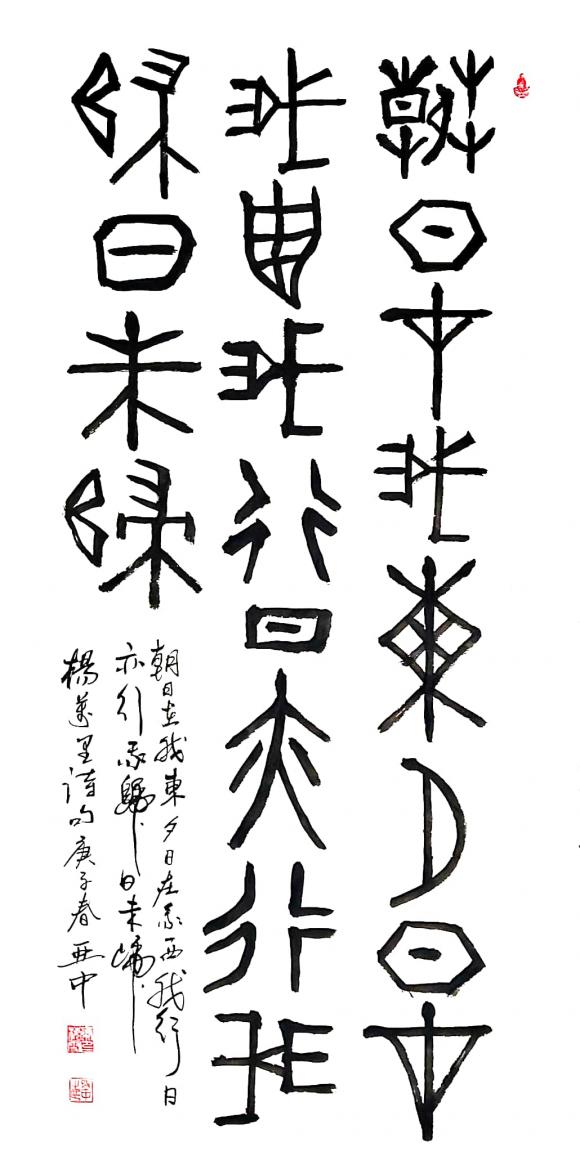 朝日在我東夕日在
我西我行日亦行我
歸日未歸
朝日在我東夕日在我西我行日
亦行我歸日未歸
楊萬里詩句庚子春亚中